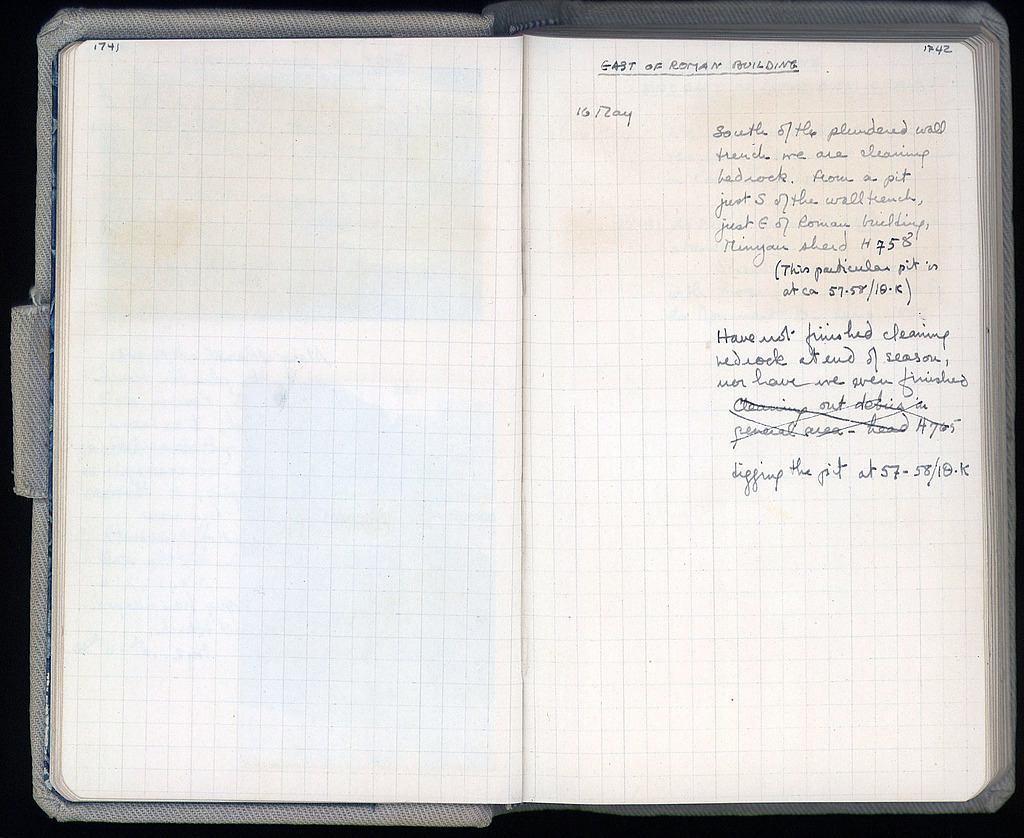 1741
1742
EAST OF ROMAN BUILDING
16 May
South of the plundered wall
trench we are cleaning
bedrock. From a pit
just S of the wall trench,
just E of Roman building,
Minyan sherd H 758
(This particular pit is
at ca 57-58/10.K)
Have not finished cleaning
bedrock at end of season,
nor have we even finished
cleaning out debris in
general area - head H 765
digging the pit at 57-58/10.K